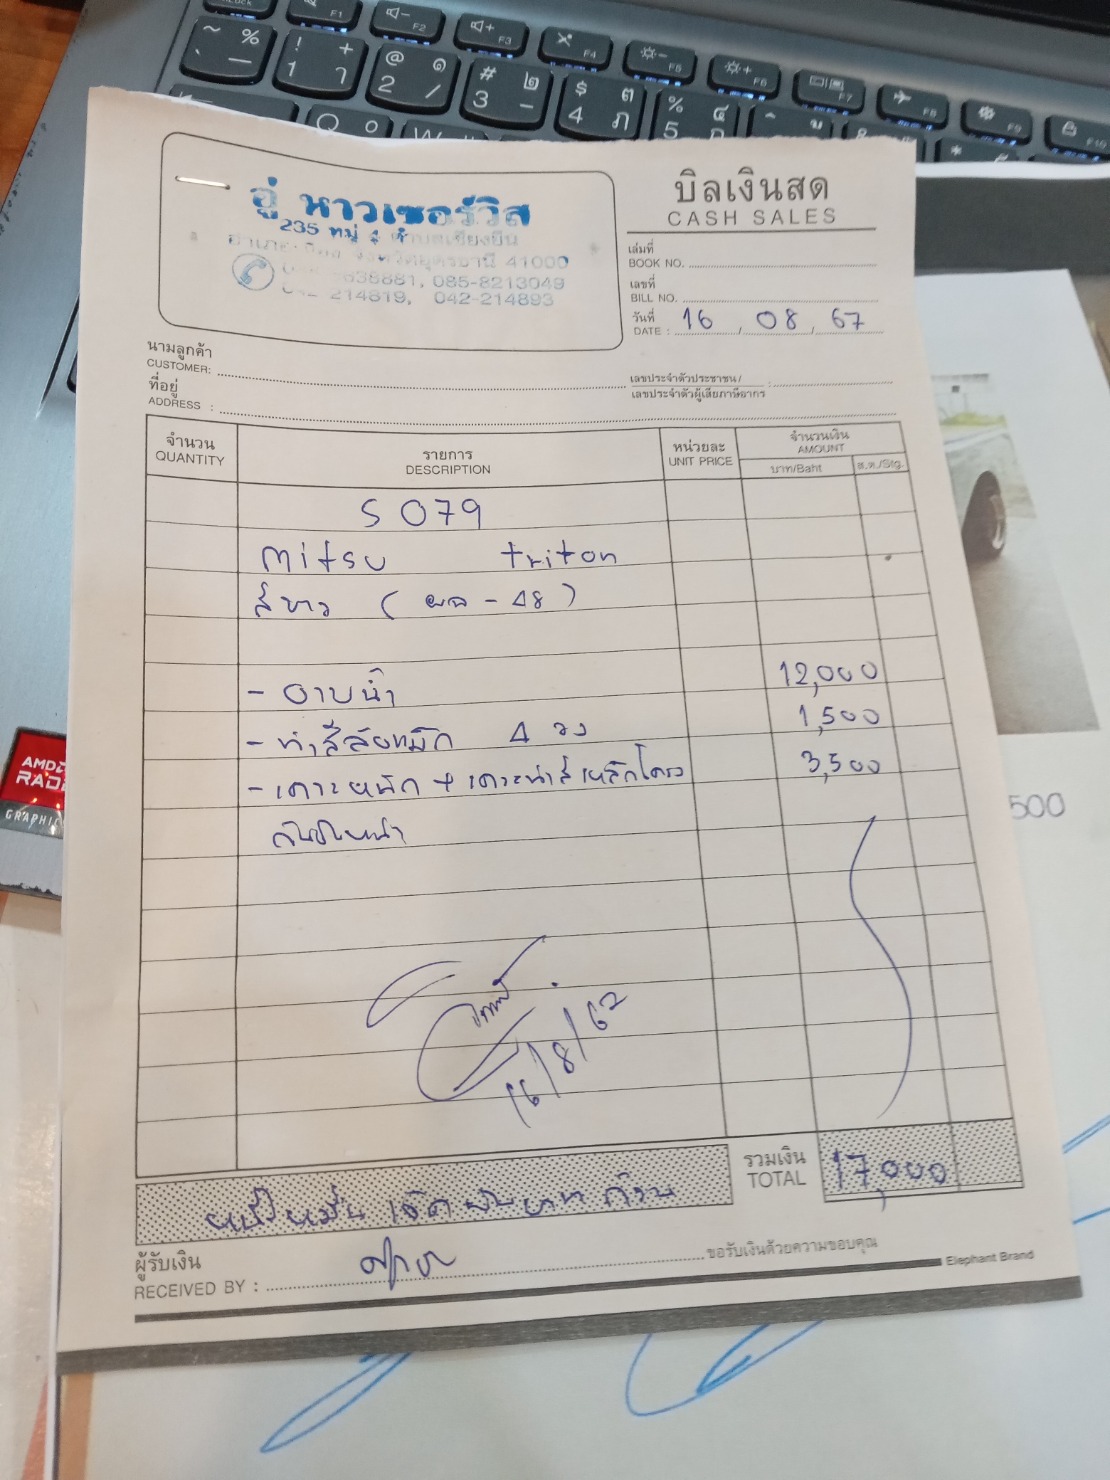 บิลเงินสด
CASH SALES
อู่ หาวเซอร์วิส
235 หมู่ 4 ตำบลเชียงยืน
จังหวัดอุดรธานี 41000
5638881, 085-8213049
214819, 042-214893
เล่มที่
BOOK NO.
เลขที่
BILL NO.
วันที่
DATE : 16 / 08 / 67
นามลูกค้า
CUSTOMER:
ที่อยู่
ADDRESS :
เลขประจำตัวประชาชน/
เลขประจำตัวผู้เสียภาษีอากร
จำนวน รายการ หน่วยละ จำนวนเงิน
QUANTITY DESCRIPTION UNIT PRICE AMOUNT
บาท/Baht ส.ต./Stg.
S 079
mitsu triton
สีขาว ( ผฉ - 48 )
- อาบน้ำ 12,000
- ทำสีล้อแม็ก 4 วง 1,500
- เคาะ + เคาะทำสี เหล็กโครง 3,500
กันชนหน้า
16/8/67
หนึ่งหมื่น เจ็ดพันบาท ถ้วน
รวมเงิน
TOTAL 17,000
ผู้รับเงิน
RECEIVED BY :
ขอรับเงินด้วยความขอบคุณ
Elephant Brand
500
AMD
RADE
GRAPHIC